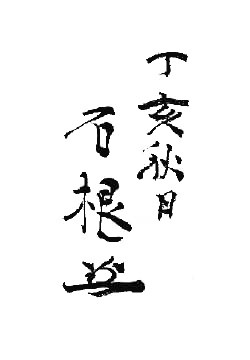 丁亥秋日
石根並